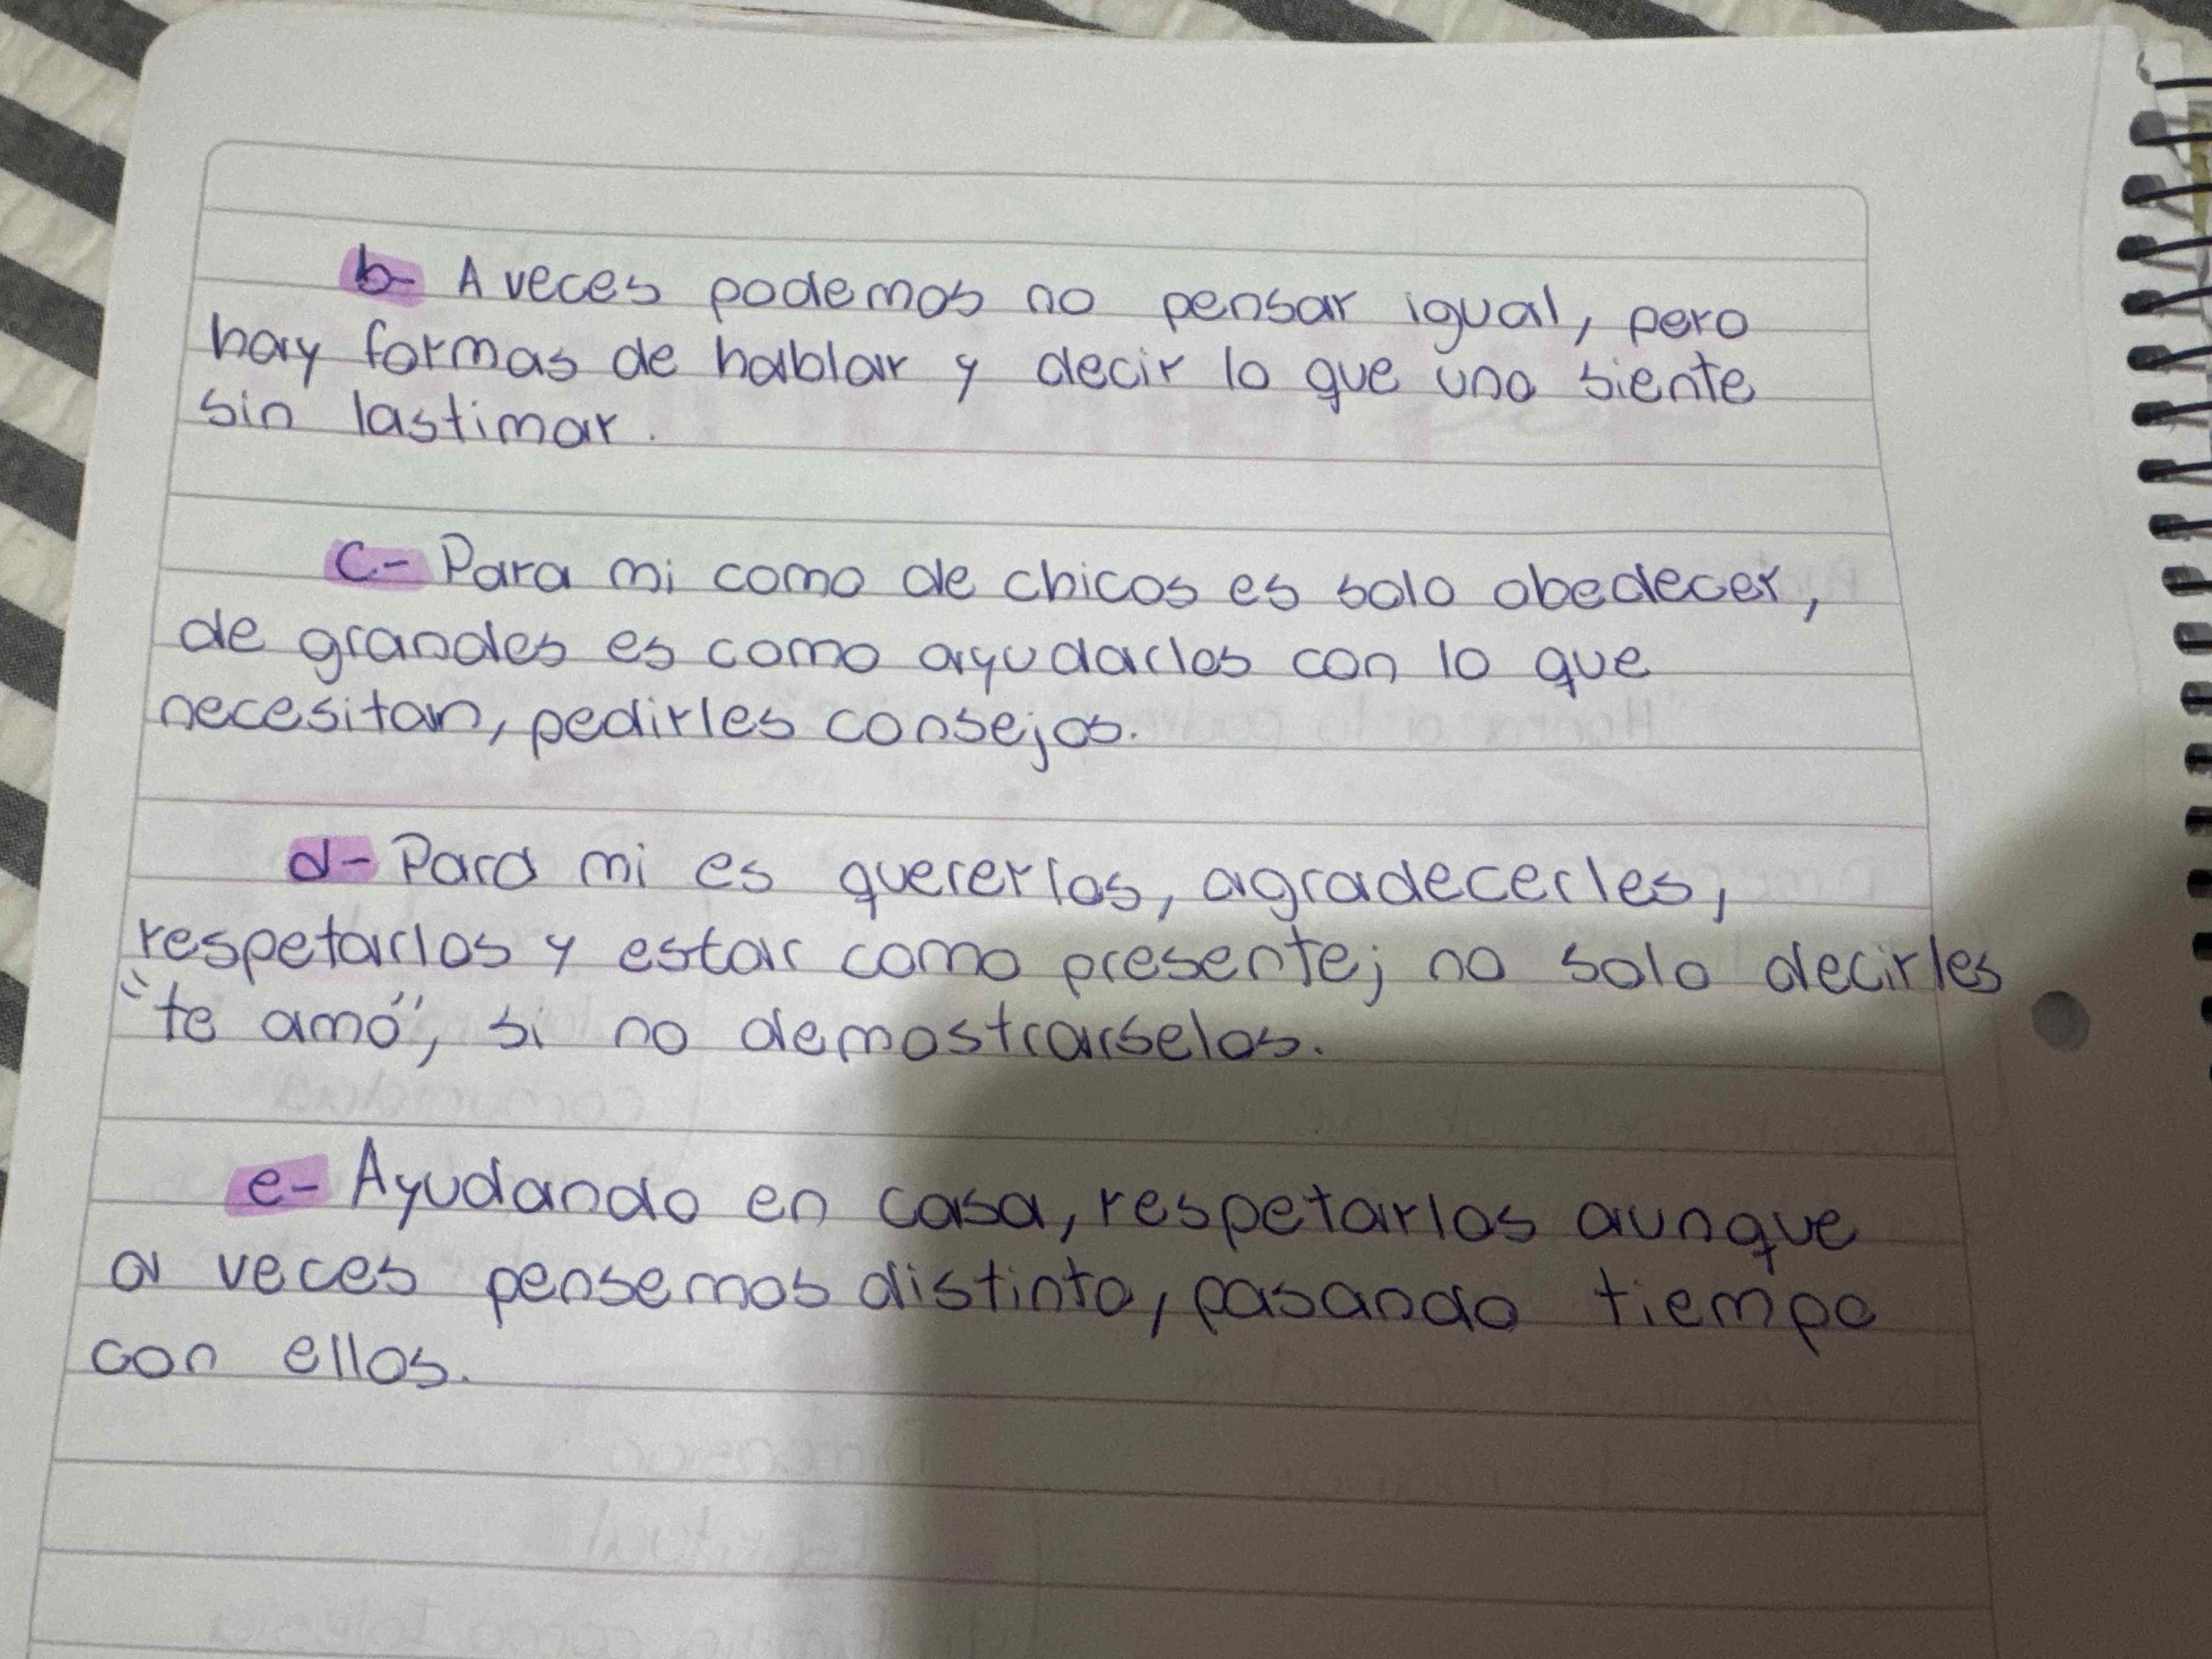 b- A veces podemos no pensar igual, pero
hay formas de hablar y decir lo que uno siente
sin lastimar.
c- Para mi como de chicos es solo obedecer,
de grandes es como ayudarlos con lo que
necesitan, pedirles consejos.
d- Para mi es quererlos, agradecerles,
respetarlos y estar como presente; no solo decirles
"te amo", si no demostrarselos.
e- Ayudando en casa, respetarlos aunque
a veces pensemos distinto, pasando tiempo
con ellos.